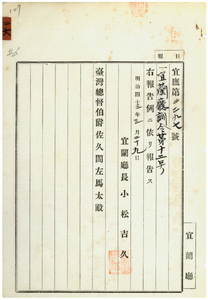 報告
宜廳第二二九七號
一宜蘭廳訓令第十五號
右報告例ニ依リ報告ス
明治四十三年三月二十九日
宜蘭廳長小松吉久
臺灣總督伯爵佐久間左馬太殿
宜蘭廳